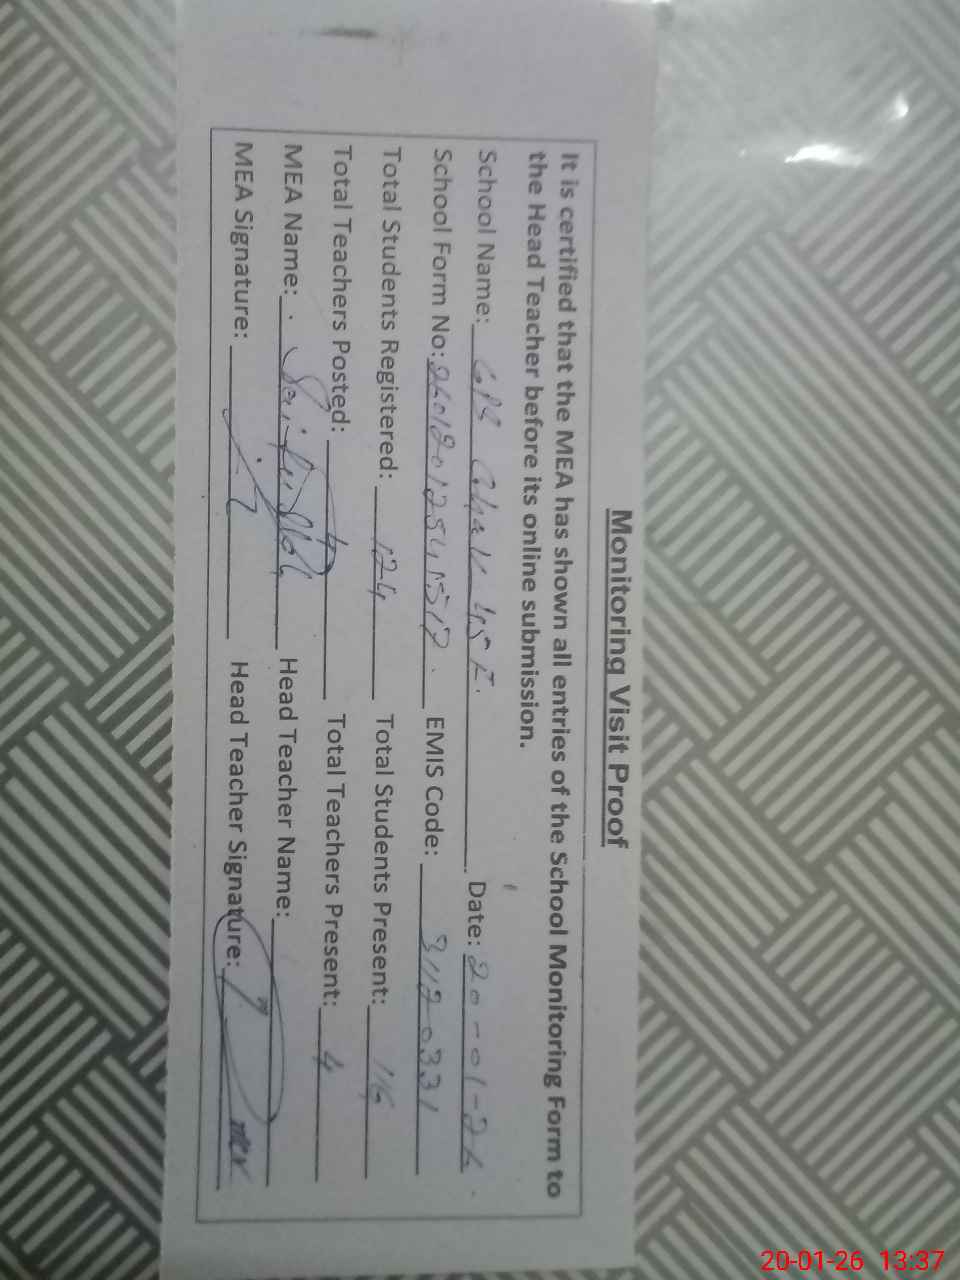 Monitoring Visit Proof
It is certified that the MEA has shown all entries of the School Monitoring Form to
the Head Teacher before its online submission.
School Name: GPS Chak 45 F. Date: 20-01-26
School Form No: EMIS Code: 31170331
Total Students Registered: 124 Total Students Present: 116
Total Teachers Posted: 4 Total Teachers Present: 4
MEA Name: Saifullah Head Teacher Name:
MEA Signature: Head Teacher Signature:
20-01-26 13:37